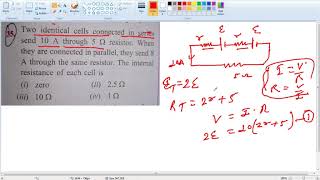 35. Two identical cells connected in series
send 10 A through 5 Ω resistor. When
they are connected in parallel, they send 8
A through the same resistor. The internal
resistance of each cell is
(i) zero (ii) 2.5 Ω
(iii) 10 Ω (iv) 1 Ω
r ε r ε
20A
5Ω
E_T = 2ε
R_T = 2r + 5
V = I · R
2ε = 20(2r+5) — ①
I = V/R
R = V/I